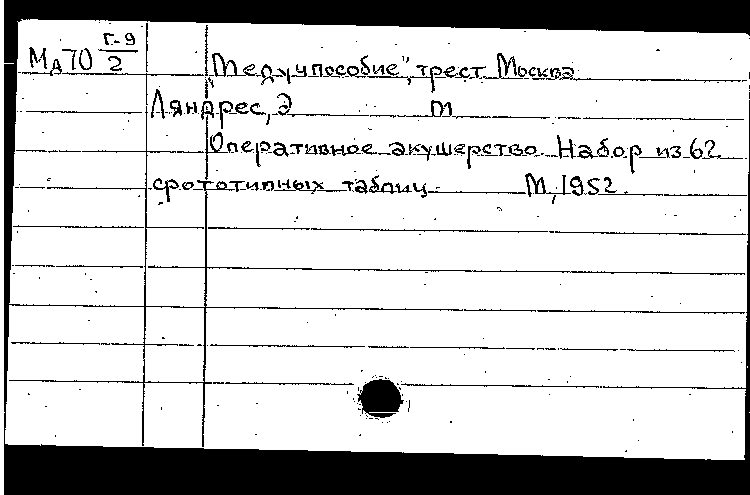 Мд70 Г-9/2
„Медучпособие", трест Москва
Ляндрес, Э М
Оперативное акушерство. Набор из 62
фототипных таблиц М, 1952.